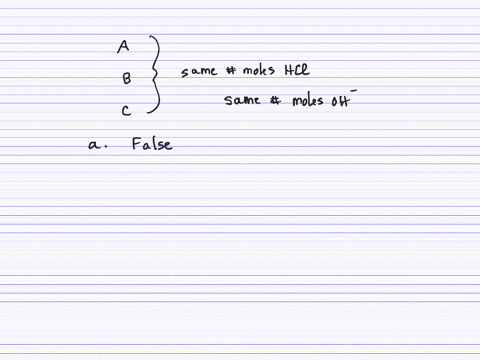 A
B
same # moles HCl
same # moles OH⁻
C
a. False